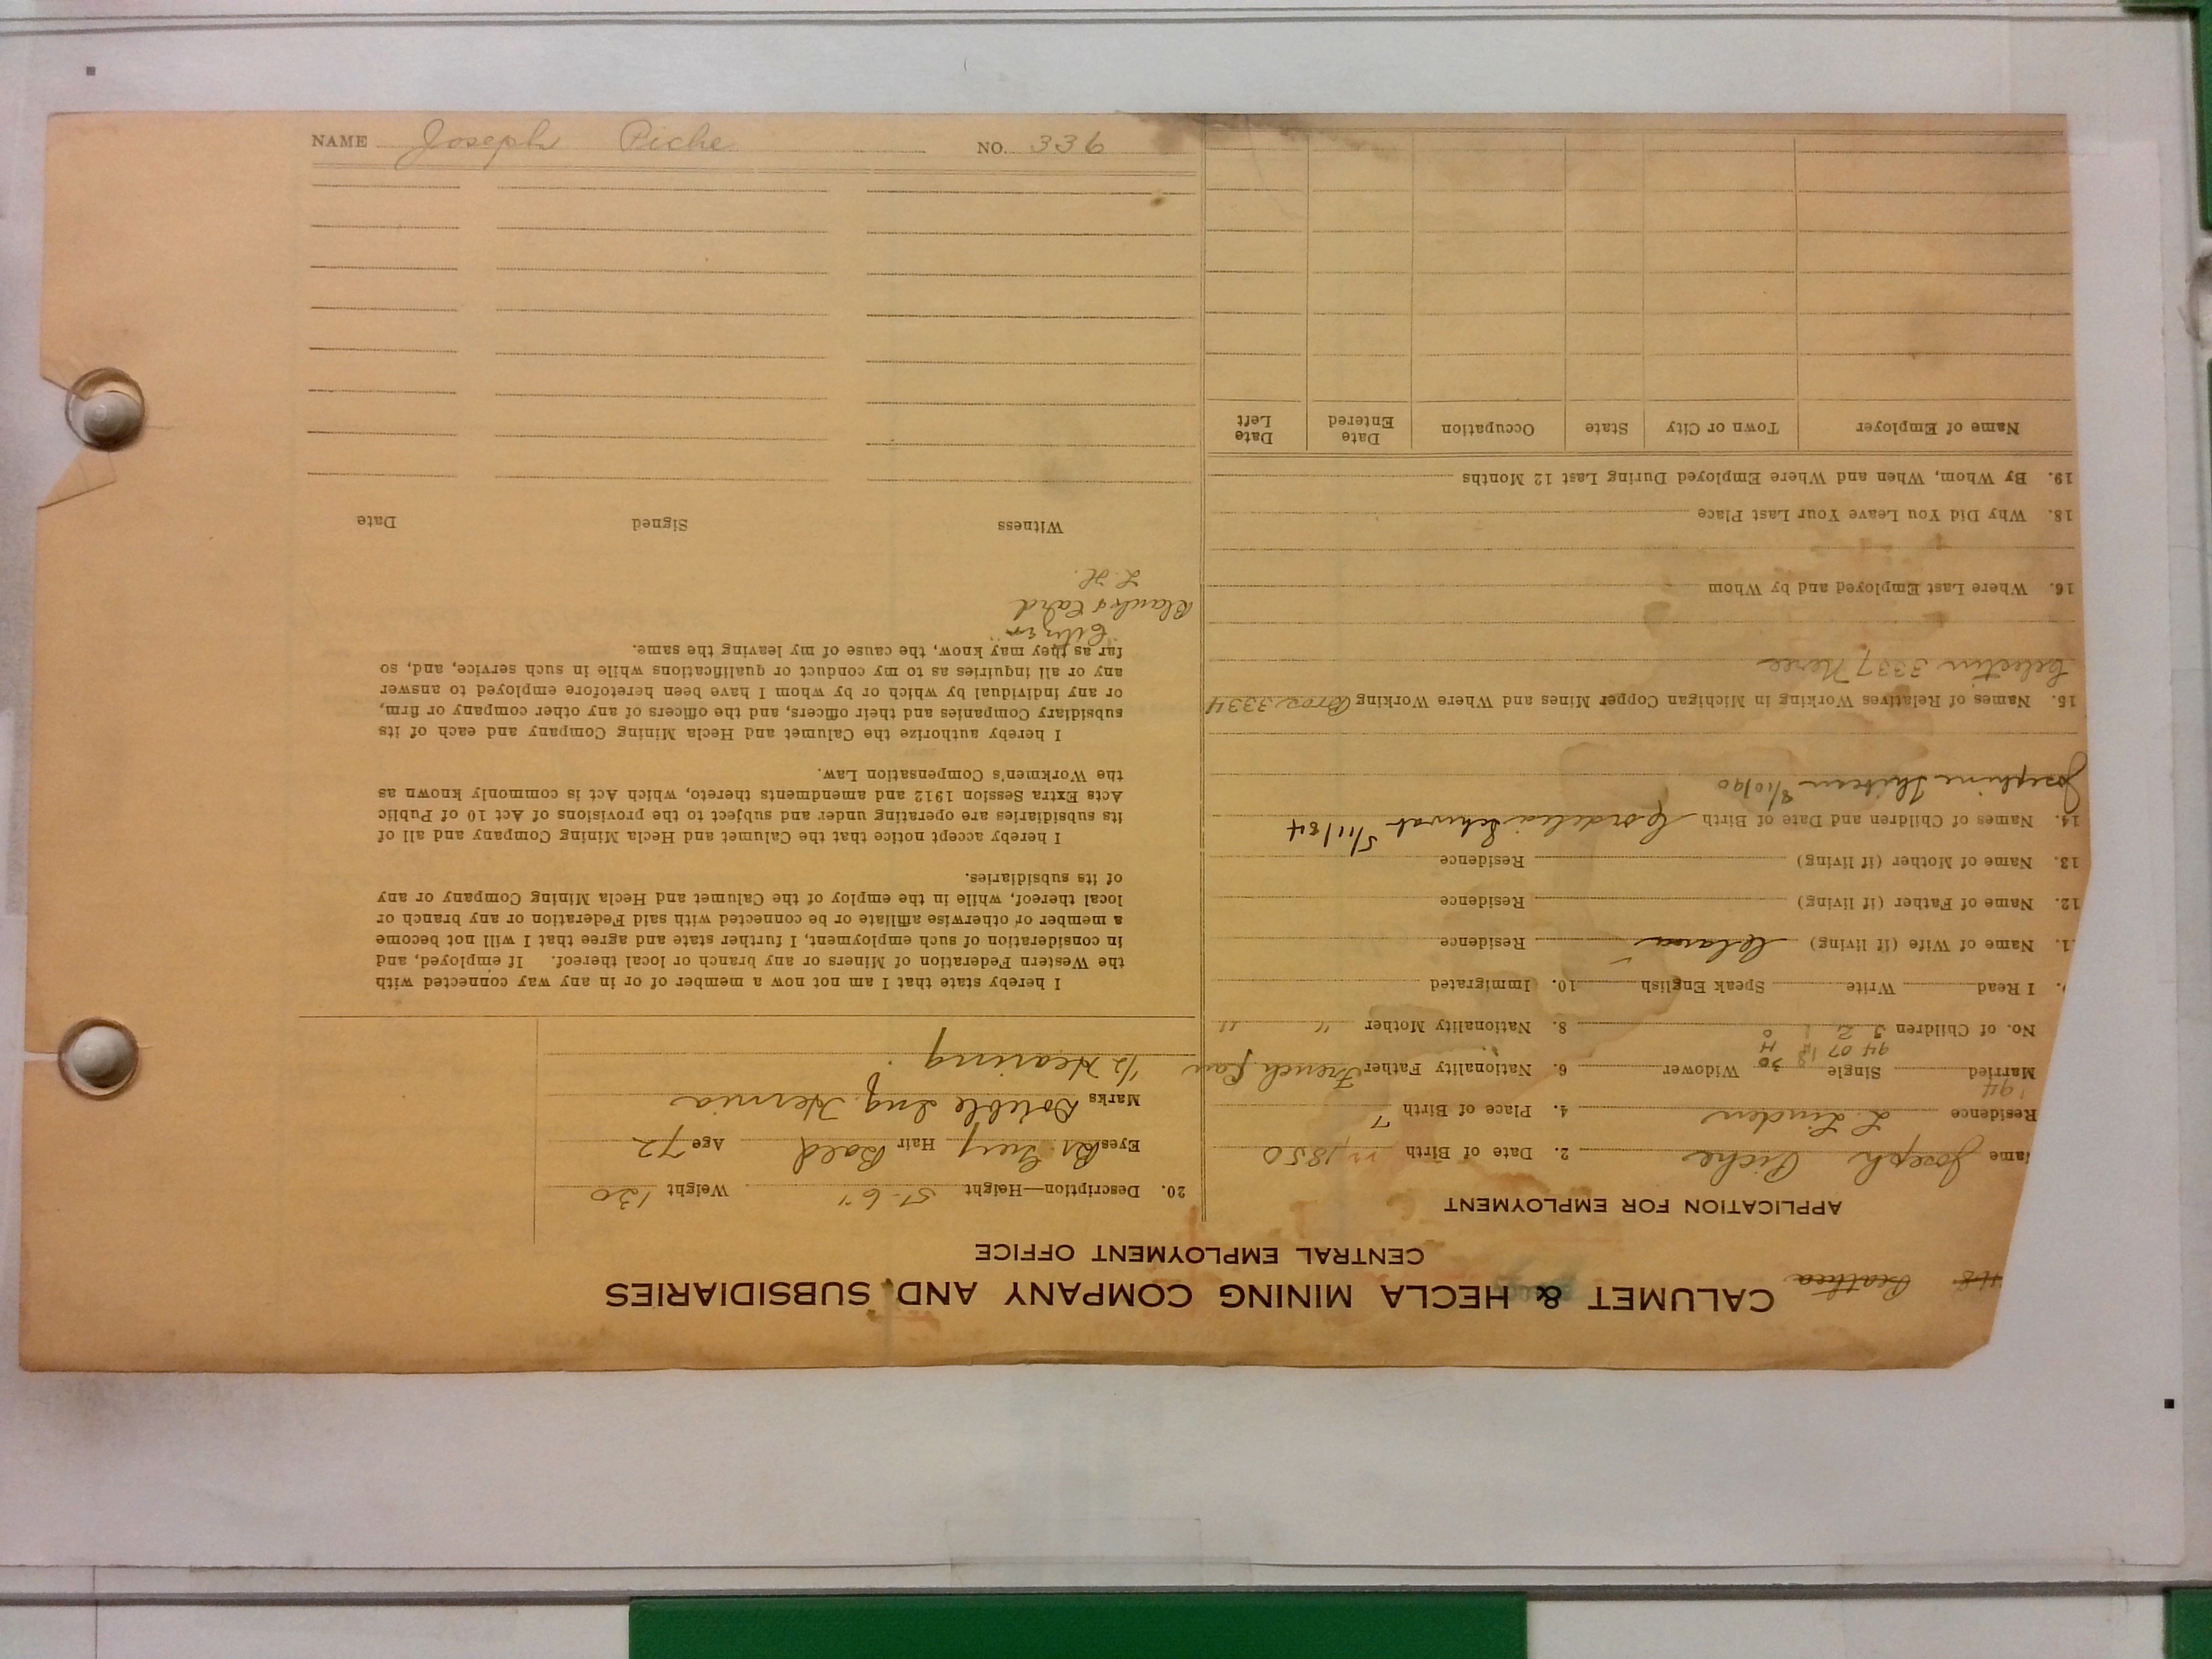 NAME Joseph Piche NO. 336
CALUMET & HECLA MINING COMPANY AND SUBSIDIARIES
CENTRAL EMPLOYMENT OFFICE
APPLICATION FOR EMPLOYMENT
ame Joseph Piche 2. Date of Birth 1850
Residence L. Linden 4. Place of Birth
'94
Married Single Widower 6. Nationality Father French Can
94 07 18 30
No. of Children 3 2 8. Nationality Mother " "
I Read Write Speak English 10. Immigrated
1. Name of Wife (if living) Residence
12. Name of Father (if living) Residence
13. Name of Mother (if living) Residence
14. Names of Children and Date of Birth Cordelia 5/11/84
Josephine 8/10/90
15. Names of Relatives Working in Michigan Copper Mines and Where Working Bros. 3334
3337
16. Where Last Employed and by Whom
18. Why Did You Leave Your Last Place
19. By Whom, When and Where Employed During Last 12 Months
Name of Employer Town or City State Occupation Date Entered Date Left
20. Description—Height 5'-6" Weight 130
Eyes Grey Hair Bald Age 72
Marks Double Ing. Hernia
1/2 Hearing
I hereby state that I am not now a member of or in any way connected with
the Western Federation of Miners or any branch or local thereof. If employed, and
in consideration of such employment, I further state and agree that I will not become
a member or otherwise affiliate or be connected with said Federation or any branch or
local thereof, while in the employ of the Calumet and Hecla Mining Company or any
of its subsidiaries.
I hereby accept notice that the Calumet and Hecla Mining Company and all of
its subsidiaries are operating under and subject to the provisions of Act 10 of Public
Acts Extra Session 1912 and amendments thereto, which Act is commonly known as
the Workmen's Compensation Law.
I hereby authorize the Calumet and Hecla Mining Company and each of its
subsidiary Companies and their officers, and the officers of any other company or firm,
or any individual by which or by whom I have been heretofore employed to answer
any or all inquiries as to my conduct or qualifications while in such service, and, so
far as they may know, the cause of my leaving the same.
Citizen
Card
L. H.
Witness Signed Date